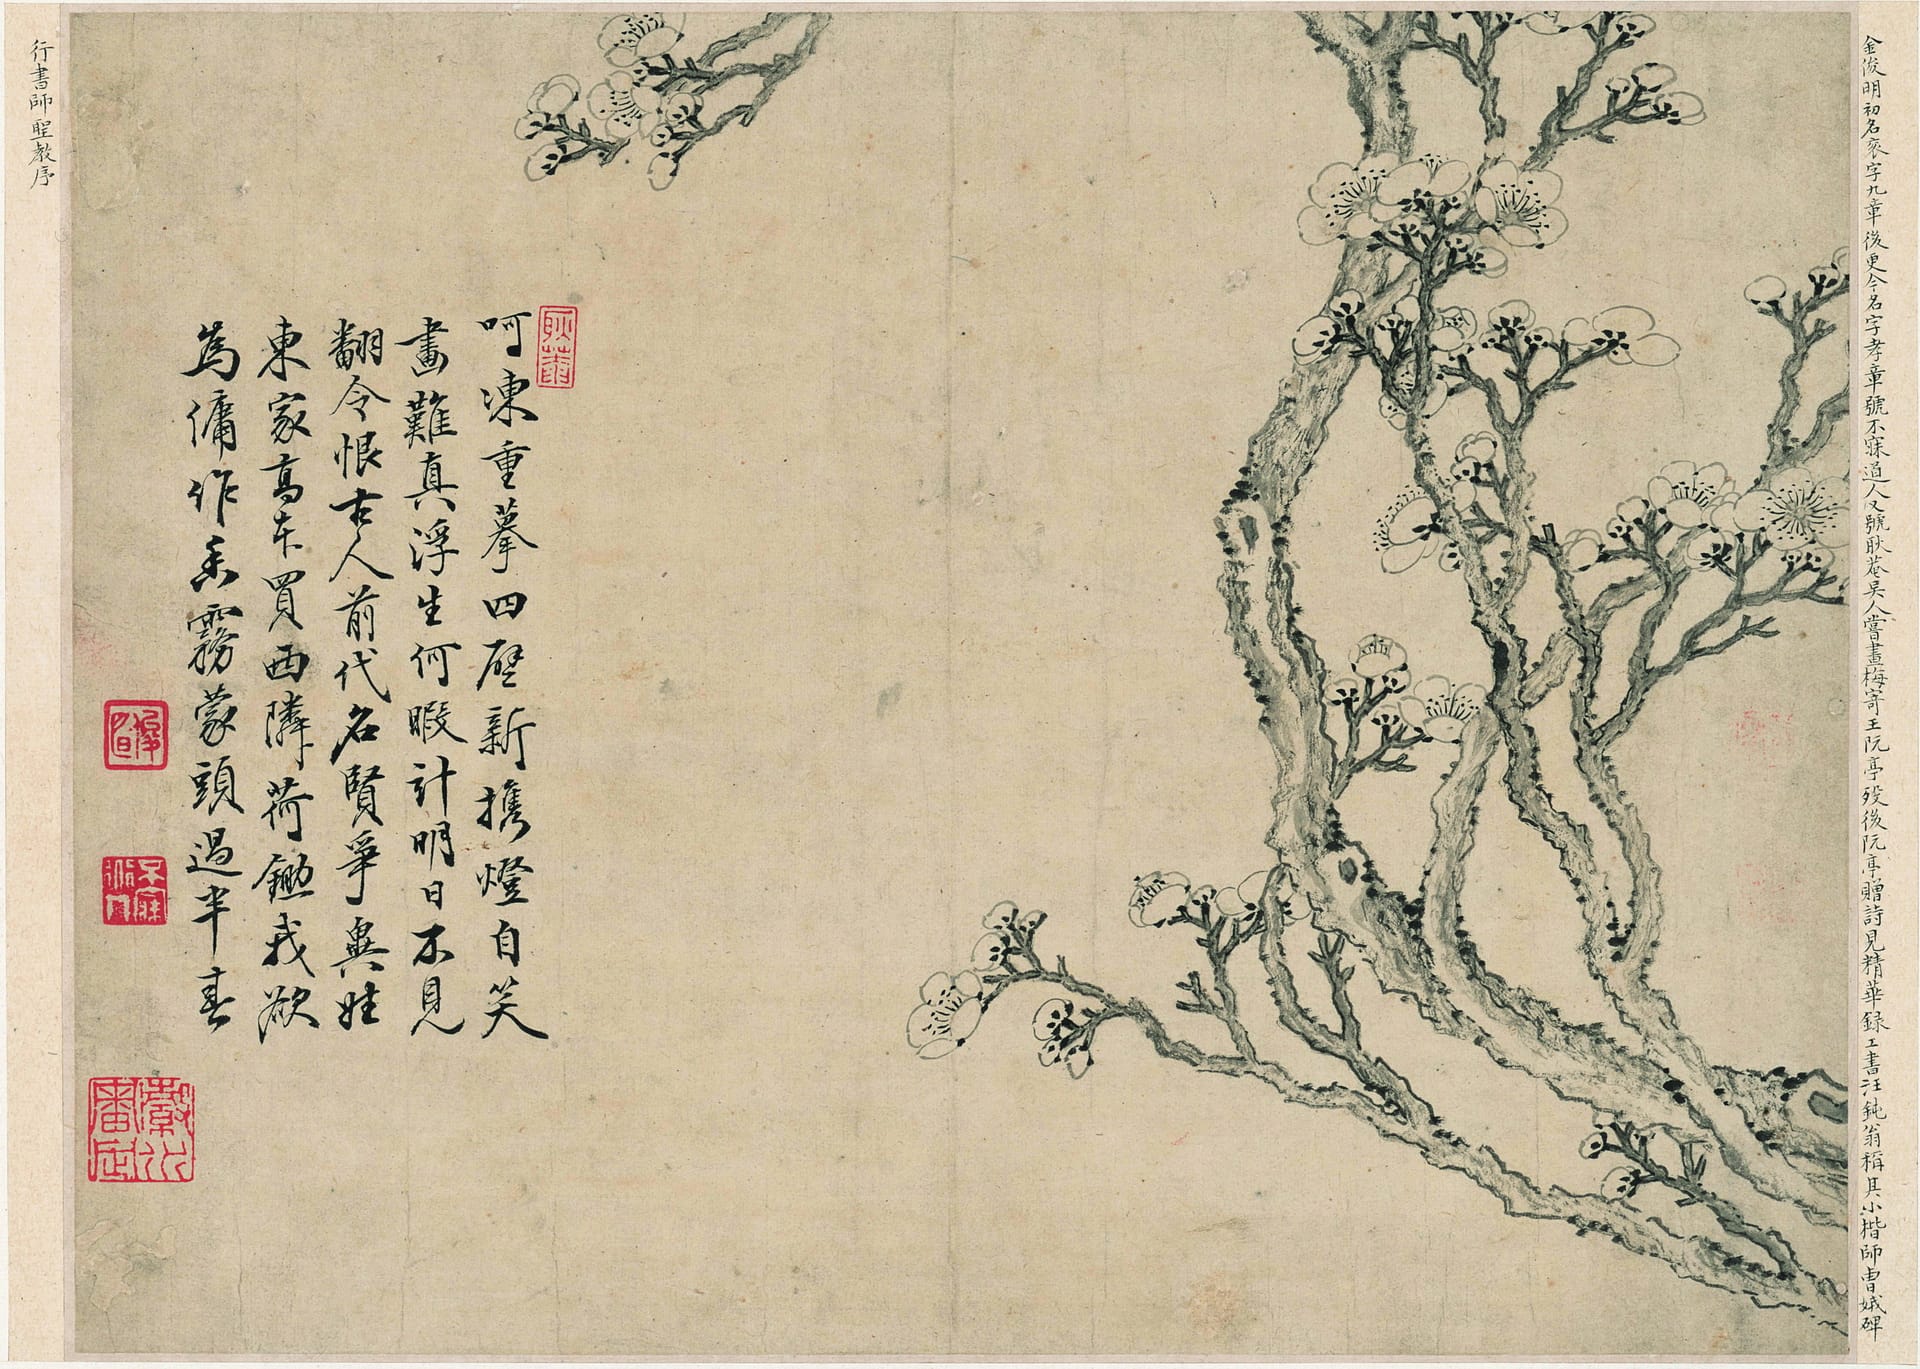 金俊明初名袞字九章後更今名字孝章號不寐道人又號耿菴吳人嘗畫梅寄王阮亭歿後阮亭贈詩見精華録工書汪鈍翁稱其小楷師曹娥碑
耿菴
呵凍重摹四壁新攜燈自笑
畫難真浮生何暇計明日不見
翻令恨古人前代名賢爭與娃
東家高本買西隣荷鋤我欲
為傭作香霧蒙頭過半春
俊明
不寐道人
行書師聖教序